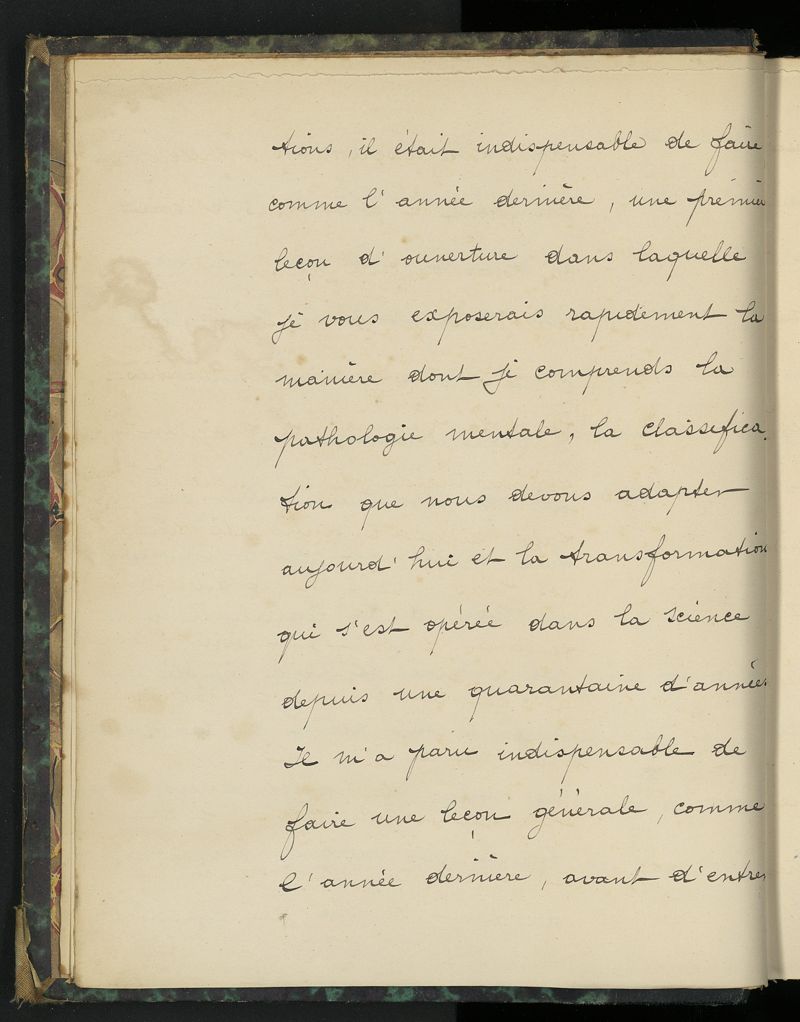 tions, il était indispensable de faire
comme l'année dernière, une premiè
leçon d'ouverture dans laquelle
je vous exposerais rapidement la
manière dont je comprends la
pathologie mentale, la classifica
tion que nous devons adapter
aujourd'hui et la transformation
qui s'est opérée dans la science
depuis une quarantaine d'années
Il m'a paru indispensable de
faire une leçon générale, comme
l'année dernière, avant d'entrer